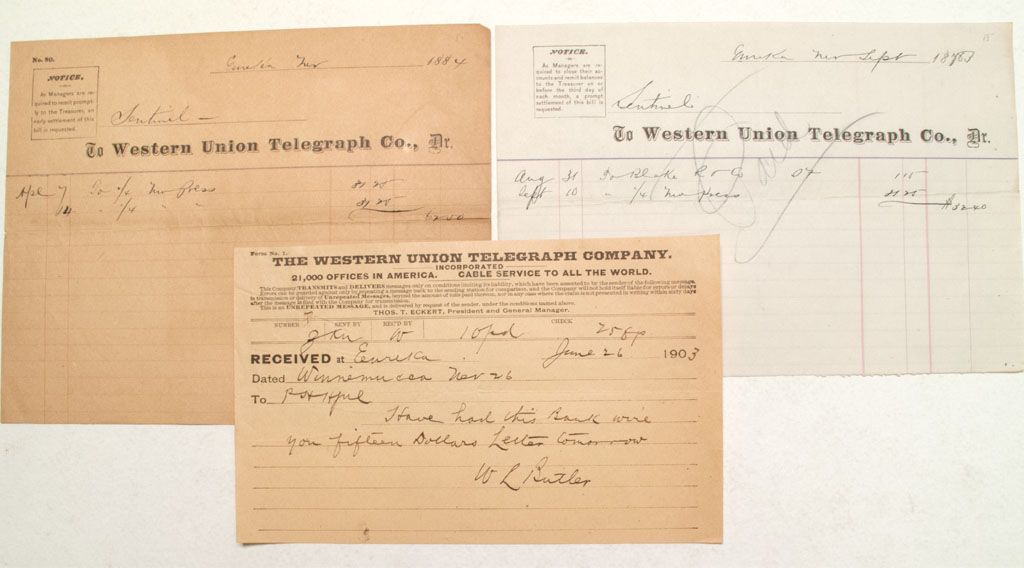 No. 80.
Eureka Nev 1884
NOTICE.
As Managers are re-
quired to remit prompt-
ly to the Treasurer, an
early settlement of this
bill is requested.
Sentinel
To Western Union Telegraph Co., Dr.
Apl 7 To 1/4 Nev Press 31 25
14 " 1/4 " " 31 25
6250
NOTICE.
As Managers are re-
quired to close their ac-
counts and remit balances
to the Treasurer on or
before the third day of
each month, a prompt
settlement of this bill is
requested.
Eureka Nev Sept 187
Sentinel
To Western Union Telegraph Co., Dr.
Paid
Aug 31 To Blake & Co 1 15
Sept 10 " 1/4 Nev Press 31 25
$3240
Form No. 1.
THE WESTERN UNION TELEGRAPH COMPANY.
INCORPORATED
21,000 OFFICES IN AMERICA. CABLE SERVICE TO ALL THE WORLD.
This Company TRANSMITS and DELIVERS messages only on conditions limiting its liability, which have been assented to by the sender of the following message.
Errors can be guarded against only by repeating a message back to the sending station for comparison, and the Company will not hold itself liable for errors or delays
in transmission or delivery of Unrepeated Messages, beyond the amount of tolls paid thereon, nor in any case where the claim is not presented in writing within sixty days
after the message is filed with the Company for transmission.
This is an UNREPEATED MESSAGE, and is delivered by request of the sender, under the conditions named above.
THOS. T. ECKERT, President and General Manager.
NUMBER SENT BY REC'D BY CHECK
W 10 pd 258p
RECEIVED at Eureka June 26 1903
Dated Winnemucca Nev 26
To
Have had this Bank wire
you fifteen Dollars Letter tomorrow
W L Butler